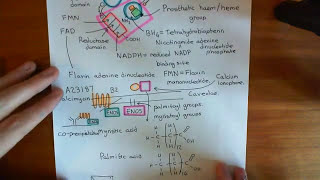 domain
FMN
FAD
Reductase
domain
NH₂
COOH
Prosthetic haem/heme
group
BH₄ = Tetrahydrobiopterin
Nicotinamide adenine
dinucleotide
phosphate
NADPH = reduced NADP
binding site
Flavin adenine dinucleotide
FMN = Flavin
mononucleotide
Calcium
ionophore
A23187
calcimycin
B2
Caveolus
eNOS
eNOS
palmitoyl groups
myristoyl groups
co-precipitation
Myristic acid
Palmitic acid
H
C
OH
12
H
C
OH